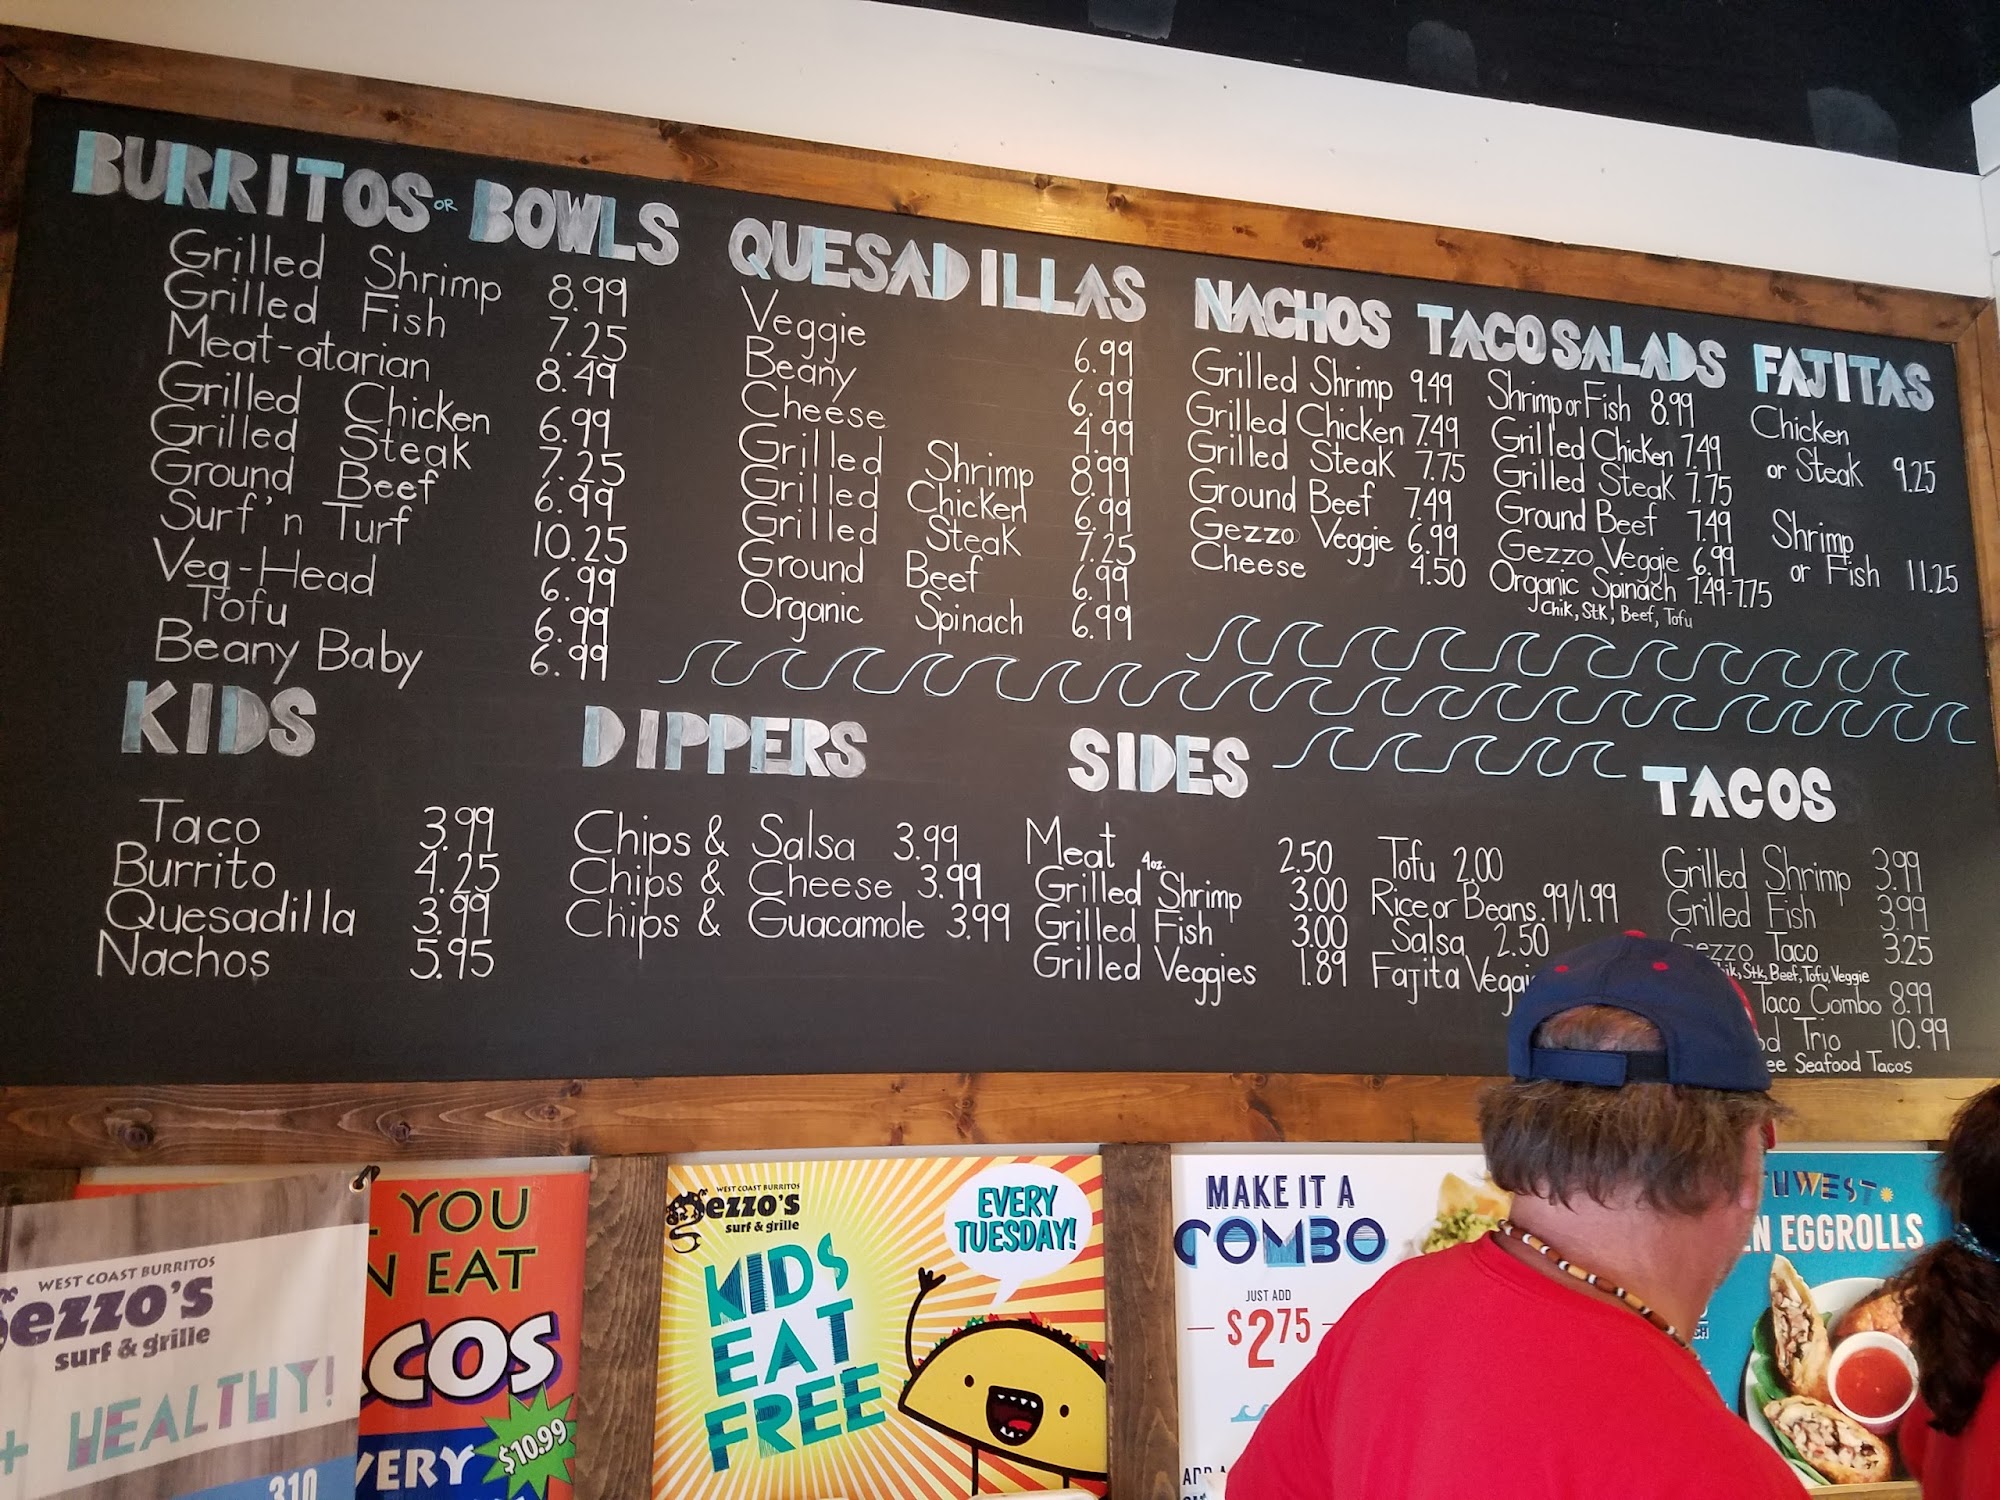 BURRITOS OR BOWLS
Grilled Shrimp 8.99
Grilled Fish 7.25
Meat-atarian 8.49
Grilled Chicken 6.99
Grilled Steak 7.25
Ground Beef 6.99
Surf'n Turf 10.25
Veg-Head 6.99
Tofu 6.99
Beany Baby 6.99
QUESADILLAS
Veggie 6.99
Beany 6.99
Cheese 4.99
Grilled Shrimp 8.99
Grilled Chicken 6.99
Grilled Steak 7.25
Ground Beef 6.99
Organic Spinach 6.99
NACHOS
Grilled Shrimp 9.49
Grilled Chicken 7.49
Grilled Steak 7.75
Ground Beef 7.49
Gezzo Veggie 6.99
Cheese 4.50
TACO SALADS
Shrimp or Fish 8.99
Grilled Chicken 7.49
Grilled Steak 7.75
Ground Beef 7.49
Gezzo Veggie 6.99
Organic Spinach 7.49-7.75
Chik, Stk, Beef, Tofu
FAJITAS
Chicken
or Steak 9.25
Shrimp
or Fish 11.25
KIDS
Taco 3.99
Burrito 4.25
Quesadilla 3.99
Nachos 5.95
DIPPERS
Chips & Salsa 3.99
Chips & Cheese 3.99
Chips & Guacamole 3.99
SIDES
Meat 4oz. 2.50
Grilled Shrimp 3.00
Grilled Fish 3.00
Grilled Veggies 1.89
Tofu 2.00
Rice or Beans .99/1.99
Salsa 2.50
Fajita
TACOS
Grilled Shrimp 3.99
Grilled Fish 3.99
Taco 3.25
Stk, Beef, Tofu, Veggie
Taco Combo 8.99
Trio 10.99
Seafood Tacos
WEST COAST BURRITOS
Gezzo's
surf & grille
+ HEALTHY!
310
YOU
EAT
COS
VERY
$10.99
WEST COAST BURRITOS
Gezzo's
surf & grille
EVERY
TUESDAY!
KIDS
EAT
FREE
MAKE IT A
COMBO
JUST ADD
$2.75
HWEST
EN EGGROLLS